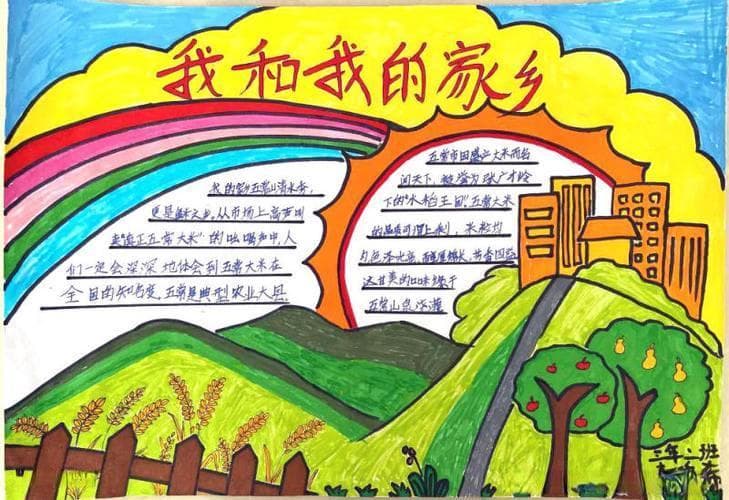 我和我的家乡
我的家乡五常山清水秀,
更是鱼米之乡。从市场上高声叫
卖“真正五常大米”的吆喝声中,人
们一定会深深地体会到五常大米在
全国的知名度。五常是典型农业大县。
五常市因盛产大米而名
闻天下,被誉为张广才岭
下的“水稻王国”。五常大米
的品质可谓上乘,米粒均
匀色泽光亮
这甘美的口味缘于
五常山泉浇灌
三年二班